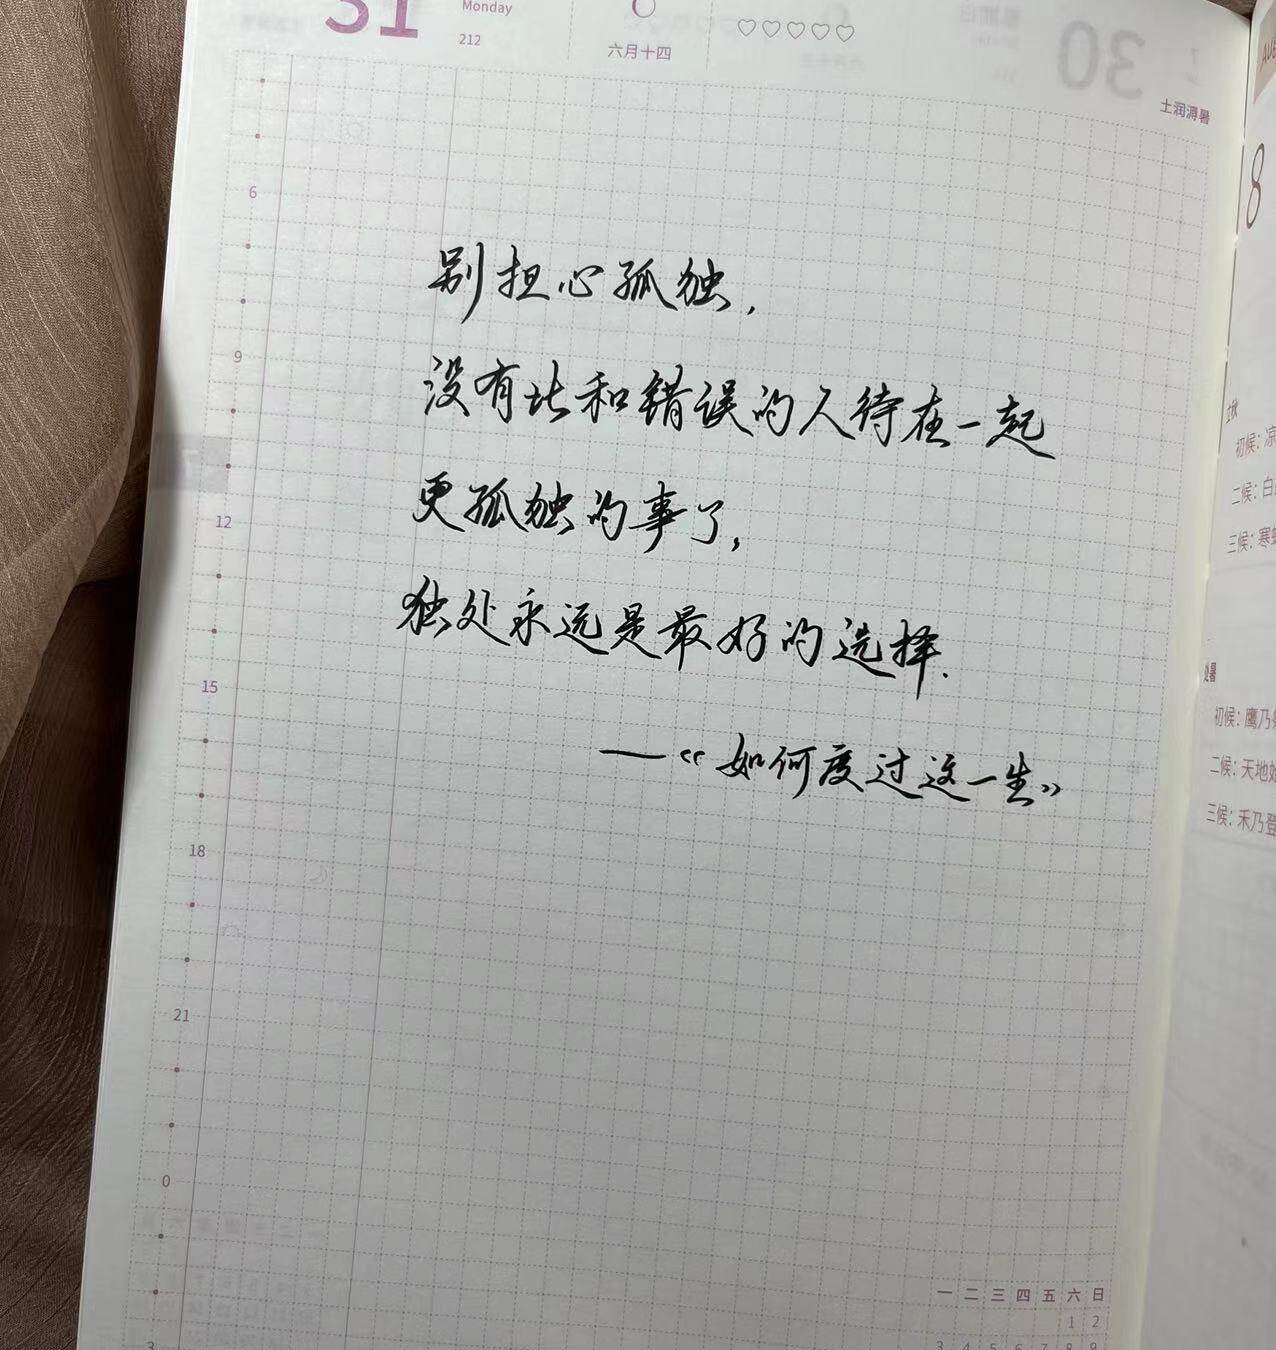 31 Monday
212
六月十四
30
土润溽暑
6
9
12
15
18
21
0
3
别担心孤独，
没有比和错误的人待在一起
更孤独的事了，
独处永远是最好的选择.
——《如何度过这一生》
一 二 三 四 五 六 日
1 2
3 4 5 6 7 8 9
8
初候：凉
二候：白
三候：寒
处暑
初候：鹰乃
二候：天地始
三候：禾乃登